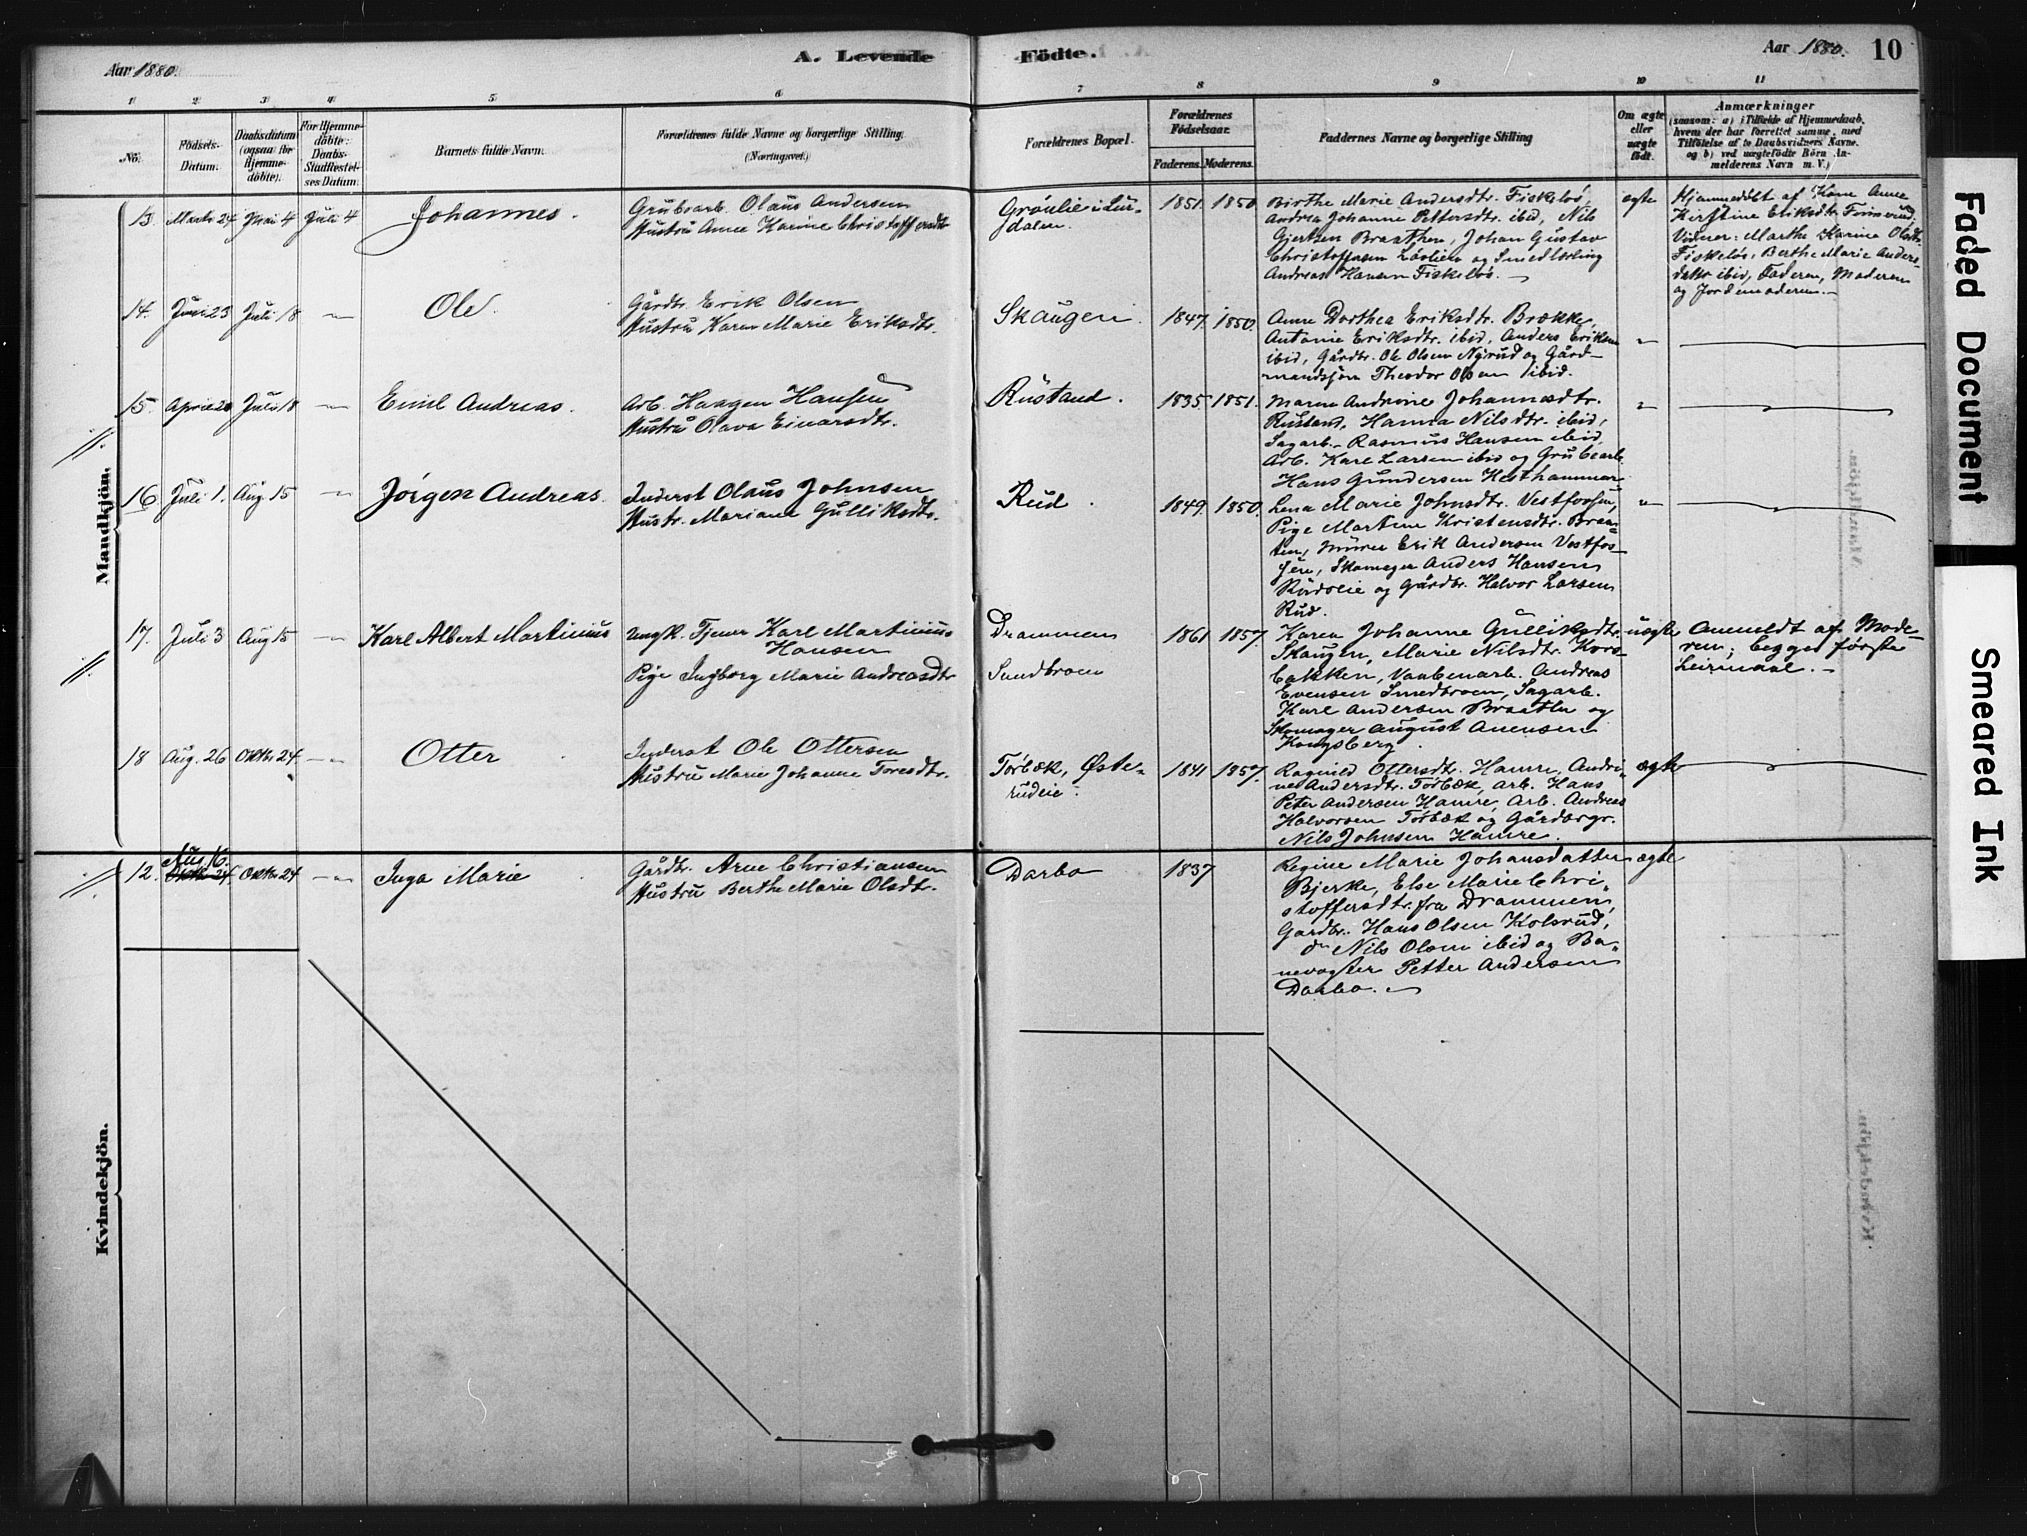 Aar 1880.
A. Levende
Födte.
Aar 1880.
10
1 2 3 4 5 6 7 8 9 10 11
No.
Födsels-
Datum.
Daabsdatum
(ogsaa for
Hjemme-
döbte).
For Hjemme-
döbte:
Daabs-
Stadfæstel-
ses Datum.
Barnets fulde Navn.
Forældrenes fulde Navne og borgerlige Stilling.
(Næringsvei.)
Forældrenes Bopæl.
Forældrenes
Födselsaar.
Faderens. Moderens.
Faddernes Navne og borgerlige Stilling
Om ægte
eller
uægte
födt.
Anmærkninger
(saasom: a) i Tilfælde af Hjemmedaab,
hvem der har forrettet samme, med
Tilföielse af to Daabsvidners Navne,
og b) ved uægtefödte Börn An-
melderens Navn m. V.)
Mandkjön.
13. Marts 24 Mai 4 Juli 4
Johannes.
Grubearb. Olaus Andersen
Hustru Anne Karine Christoffersdtr
Grönlie i Lur-
dalen.
1851. 1850
Birthe Marie Andersdtr. Fiskeløs,
Andrea Johanne Pettersdtr. ibid, Nils
Gjertsen Braathen, Johan Gustav
Christoffersen Løvlien og Smedlærling
Andreas Hansen Fiskeløs.
ægte
Hjemmedøbt af Kone Anne
Kirstine Eriksdtr.
Vidner: Marthe Karine Olsdtr.
Fiskeløs, Berthe Marie Anders-
datter ibid, Faderen, Moderen
og Jordemoderen.
14. Juni 23 Juli 18 —"—
Ole.
Gårdbr. Erik Olsen
Hustru Karen Marie Eriksdtr.
Skaugen.
1847. 1850.
Anne Dorthea Eriksdtr. Brække,
Antonie Eriksdtr. ibid, Anders Eriksen
ibid, Gårdbr. Ole Olsen Nyrud og Gård-
mandssøn Theodor Olsen ibid.
"
15. April 20 Juli 18 —"—
Emil Andreas.
Arb. Haagen Hansen
Hustru Olava Einarsdtr.
Rustand.
1835. 1851.
Maren Andrine Johannesdtr.
Rustand, Hanna Nilsdtr. ibid,
Sagarb. Rasmus Hansen ibid,
Arb. Karl Larsen ibid og Grubearb.
Hans Gundersen Hesthammer
"
16 Juli 1. Aug. 15 —"—
Jørgen Andreas.
Inderst Olaus Johnsen
Hustr. Mariane Gulliksdtr.
Rud.
1849. 1850.
Lena Marie Johnsdtr. Vestfossen,
Pige Martine Kristensdtr. Braa-
ten, Murer Erik Andersen Vestfos-
sen, Skomager Anders Hansen
og Gårdbr. Halvor Larsen
Rud.
"
17. Juli 3 Aug 15 —"—
Karl Albert Martinius
Ungk. Tjener Karl Martinius
Hansen
Pige Ingborg Marie Andreasdtr
Drammen
Sundbroen
1861 1857.
Karen Johanne Gulliksdtr.
Skaugen, Marie Nilsdtr. Kors-
bakken, Vaabenarb. Andreas
Evensen Smedbroen, Sagarb.
Karl Andersen Braaten og
Skomager August Anensen
Kongsberg.
uægte
Anmeldt af Mode-
ren; begges første
Leiermaal.
18 Aug. 26 Oktbr 24 —"—
Otter
Inderst Ole Ottersen
Hustru Marie Johanne Toresdtr.
Torbæk, Øste-
rudeie.
1841 1857.
Ragnild Ottersdtr. Hamre, Andri-
ne Andersdtr. Torbæk, Arb. Hans
Peter Andersen Hamre, Arb. Andreas
Halvorsen Torbæk og Gårdbrgr.
Nils Johnsen Hamre.
ægte
Kvindekjön.
12. Aug 16. Oktbr 24 Oktbr 24 —"—
Inga Marie
Gårdbr. Arne Christiansen
Hustru Berthe Marie Olsdtr.
Darbo
1837
Regine Marie Johansdatter
Bjerke, Else Marie Chri-
stoffersdtr. fra Drammen,
Gardbr. Hans Olsen Kolsrud,
do Nils Olsen ibid og Ba-
nevogter Petter Andersen
Darbo.
ægte
Faded Document
Smeared Ink